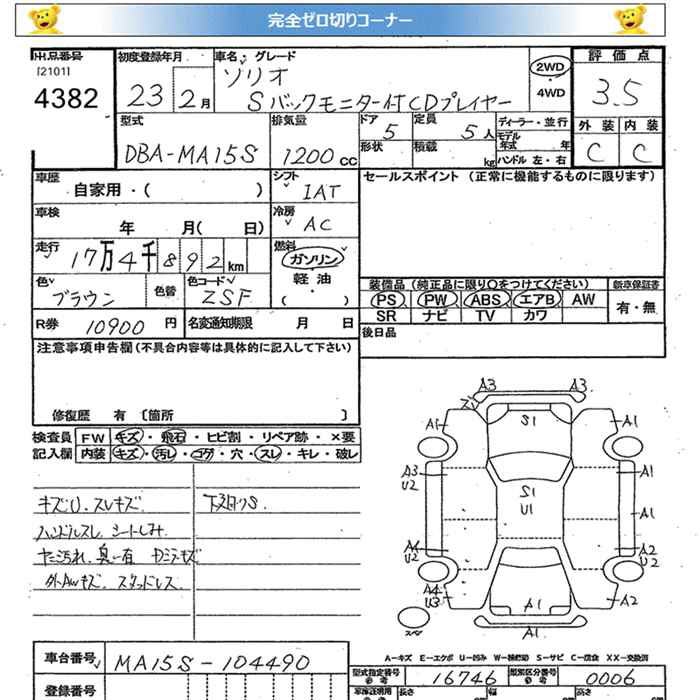 完全ゼロ切りコーナー
出品番号 初度登録年月 車名・グレード 評価点
[2101] ソリオ 2WD
4382 23 2月 Sバックモニター付CDプレイヤー 4WD 3.5
型式 排気量 ドア 定員 ディーラー・並行 外装 内装
DBA-MA15S 1200cc 5 5人 モデル年式 年 C C
形状 積載 kg ハンドル 左・右
車歴 シフト セールスポイント (正常に機能するものに限ります)
自家用・( ) IAT
車検 冷房
年 月(日) AC
走行 燃料
17万4千892km ガソリン
軽油
色 色替 色コード ( )
ブラウン ZSF
装備品(純正品に限り○をつけてください) 新車保証書
PS PW ABS エアB AW 有・無
SR ナビ TV カワ
R券 10900円 名変通知期限 月 日
後日品
注意事項申告欄(不具合内容等は具体的に記入して下さい)
修復歴 有 [箇所 ]
検査員 FW キズ・飛石・ヒビ割・リペア跡・×要
記入欄 内装 キズ・汚レ・コゲ・穴・スレ・キレ・破レ
キズU.スレキズ 下回りS.
ハンドルスレ.シートしみ
ヤニ汚れ.臭い有
外AWキズ.スタッドレス
A3 A3
A1 S1 A1
A3 A1
U2 S1
U1 A1
A1 A2
U2 U2
A4
U3 A1 A2
スペア A1
A-キズ E-エクボ U-凹み W-補修跡 S-サビ C-腐食 XX-交換済
車台番号 MA15S-104490
型式指定番号 16746 類別区分番号 0006
登録番号
参考 長さ 幅 高さ